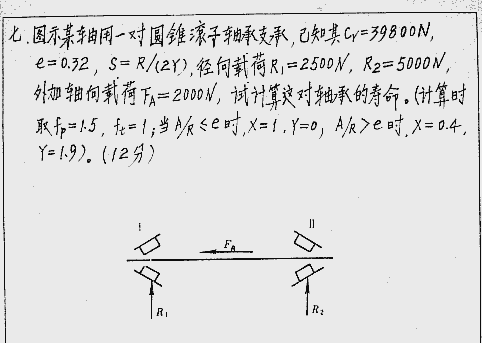 七.图示某轴用一对圆锥滚子轴承支承,已知其Cr=39800N,
e=0.32, S=R/(2Y),径向载荷R₁=2500N, R₂=5000N,
外加轴向载荷FA=2000N, 试计算这对轴承的寿命。(计算时
取fp=1.5, ft=1;当A/R≤e时,X=1,Y=0, A/R>e时,X=0.4,
Y=1.9)。(12分)
I II
FA
R₁ R₂